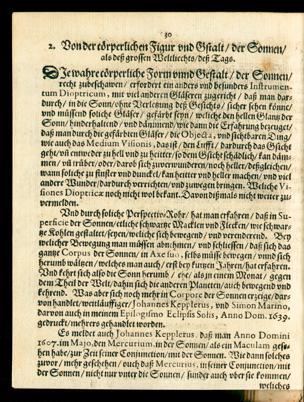 30
2. Von der cörperlichen Figur vnd Gstalt / der Sonnen /
als deß grossen Weltliechts / deß Tags.
DIe wahre cörperliche Form vnnd Gestalt / der Sonnen /
recht zubesehen / erfordert ein anders vnd besunders Instrumen-
tum Dioptricum, mit viel andern Gläseren zugericht / daß man dar-
durch / in die Sonn / ohne Verletzung deß Gesichts / sicher sehen könne /
vnd müssend soliche Gläser / gefärbt seyn / weliche den hellen Glantz der
Sonn / hinderhaltend / vnd dämmend / wie dann die Erfahrung bezeuget /
daß man durch die gefärbten Gläser / die Objecta, vnd sichtbaren Ding /
wie auch das Medium Visionis, das ist / den Lufft / dardurch das Gesicht
geht / vñ entweder zu hell vnd zu heitter / so dem Gsicht schädlich / kan däm-
men / vñ trüber / oder, darob sich zuverwundern / noch heller / deßgleichen /
wann soliche zu finster vnd dunckel / kan heitter vnd heller machen / vnd viel
andere Wunder / dardurch verrichten / vnd zuwegen bringen. Weliche Vi-
siones Dioptricæ noch nicht wol bekant. Davon dißmals nicht weiter zu-
vermelden.
Vnd durch soliche Perspectiv Rohr / hat man erfahren / daß in Su-
perficie der Sonnen / etliche schwartze Macklen vnd Flecken / wie schwar-
tze Kohlen gestaltet / seyen / weliche sich bewegend / vnd verenderend. Bey
welicher Bewegung man müssen abnehmen / vnd schliessen / daß sich das
gantze Corpus der Sonnen / in Axe suo, selbs müsse bewegen / vnnd sich
herumb waltzen / welches man auch / erst bey kurtzen Jahren / hat erfahren.
Vnd kehrt sich also die Sonn herumb / ehe / als in einem Monat / gegen
dem Theil der Welt / dahin sich die anderen Planeten / auch bewegend vnd
kehrend. Was aber sich noch mehr in Corpore der Sonnen erzeige / dar-
von handlet / weitläuffiger / Johannes Kepplerus, vnd Simon Marino,
darvon auch in meinem Epilogismo Eclipsis Solis, Anno Dom. 1639.
gedruckt / mehrers gehandlet worden.
Es meldet auch Johannes Kepplerus, daß man Anno Domini
1607. im Majo, den Mercurium, in der Sonnen / als ein Maculam gese-
hen habe / zur Zeit seiner Conjunction / mit der Sonnen. Wie dann solches
zuvor / mehr geschehen / auch daß Mercurius, in seiner Conjunction / mit
der Sonnen / nicht nur vnter die Sonnen / sunder auch vber sie kommen /
weliches